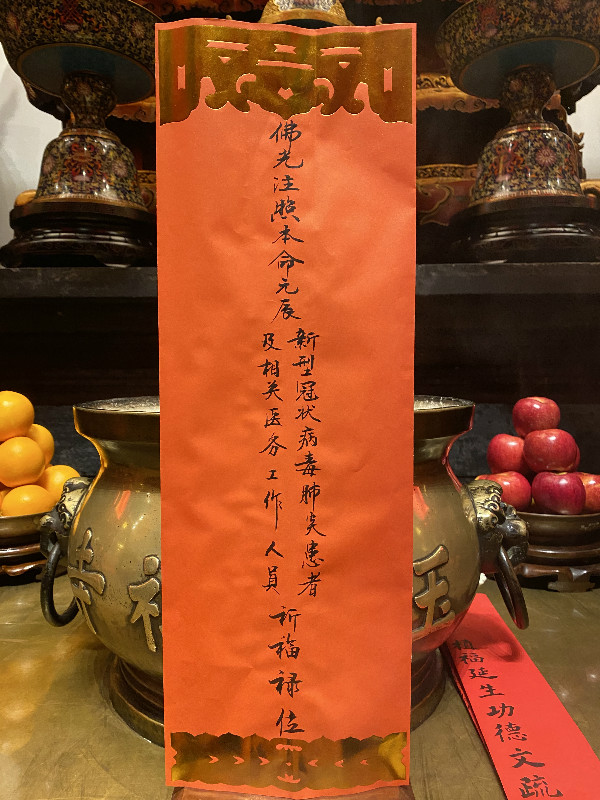 佛光注照本命元辰
新型冠状病毒肺炎患者
及相关医务工作人员
祈福禄位
植福延生功德文疏
玉